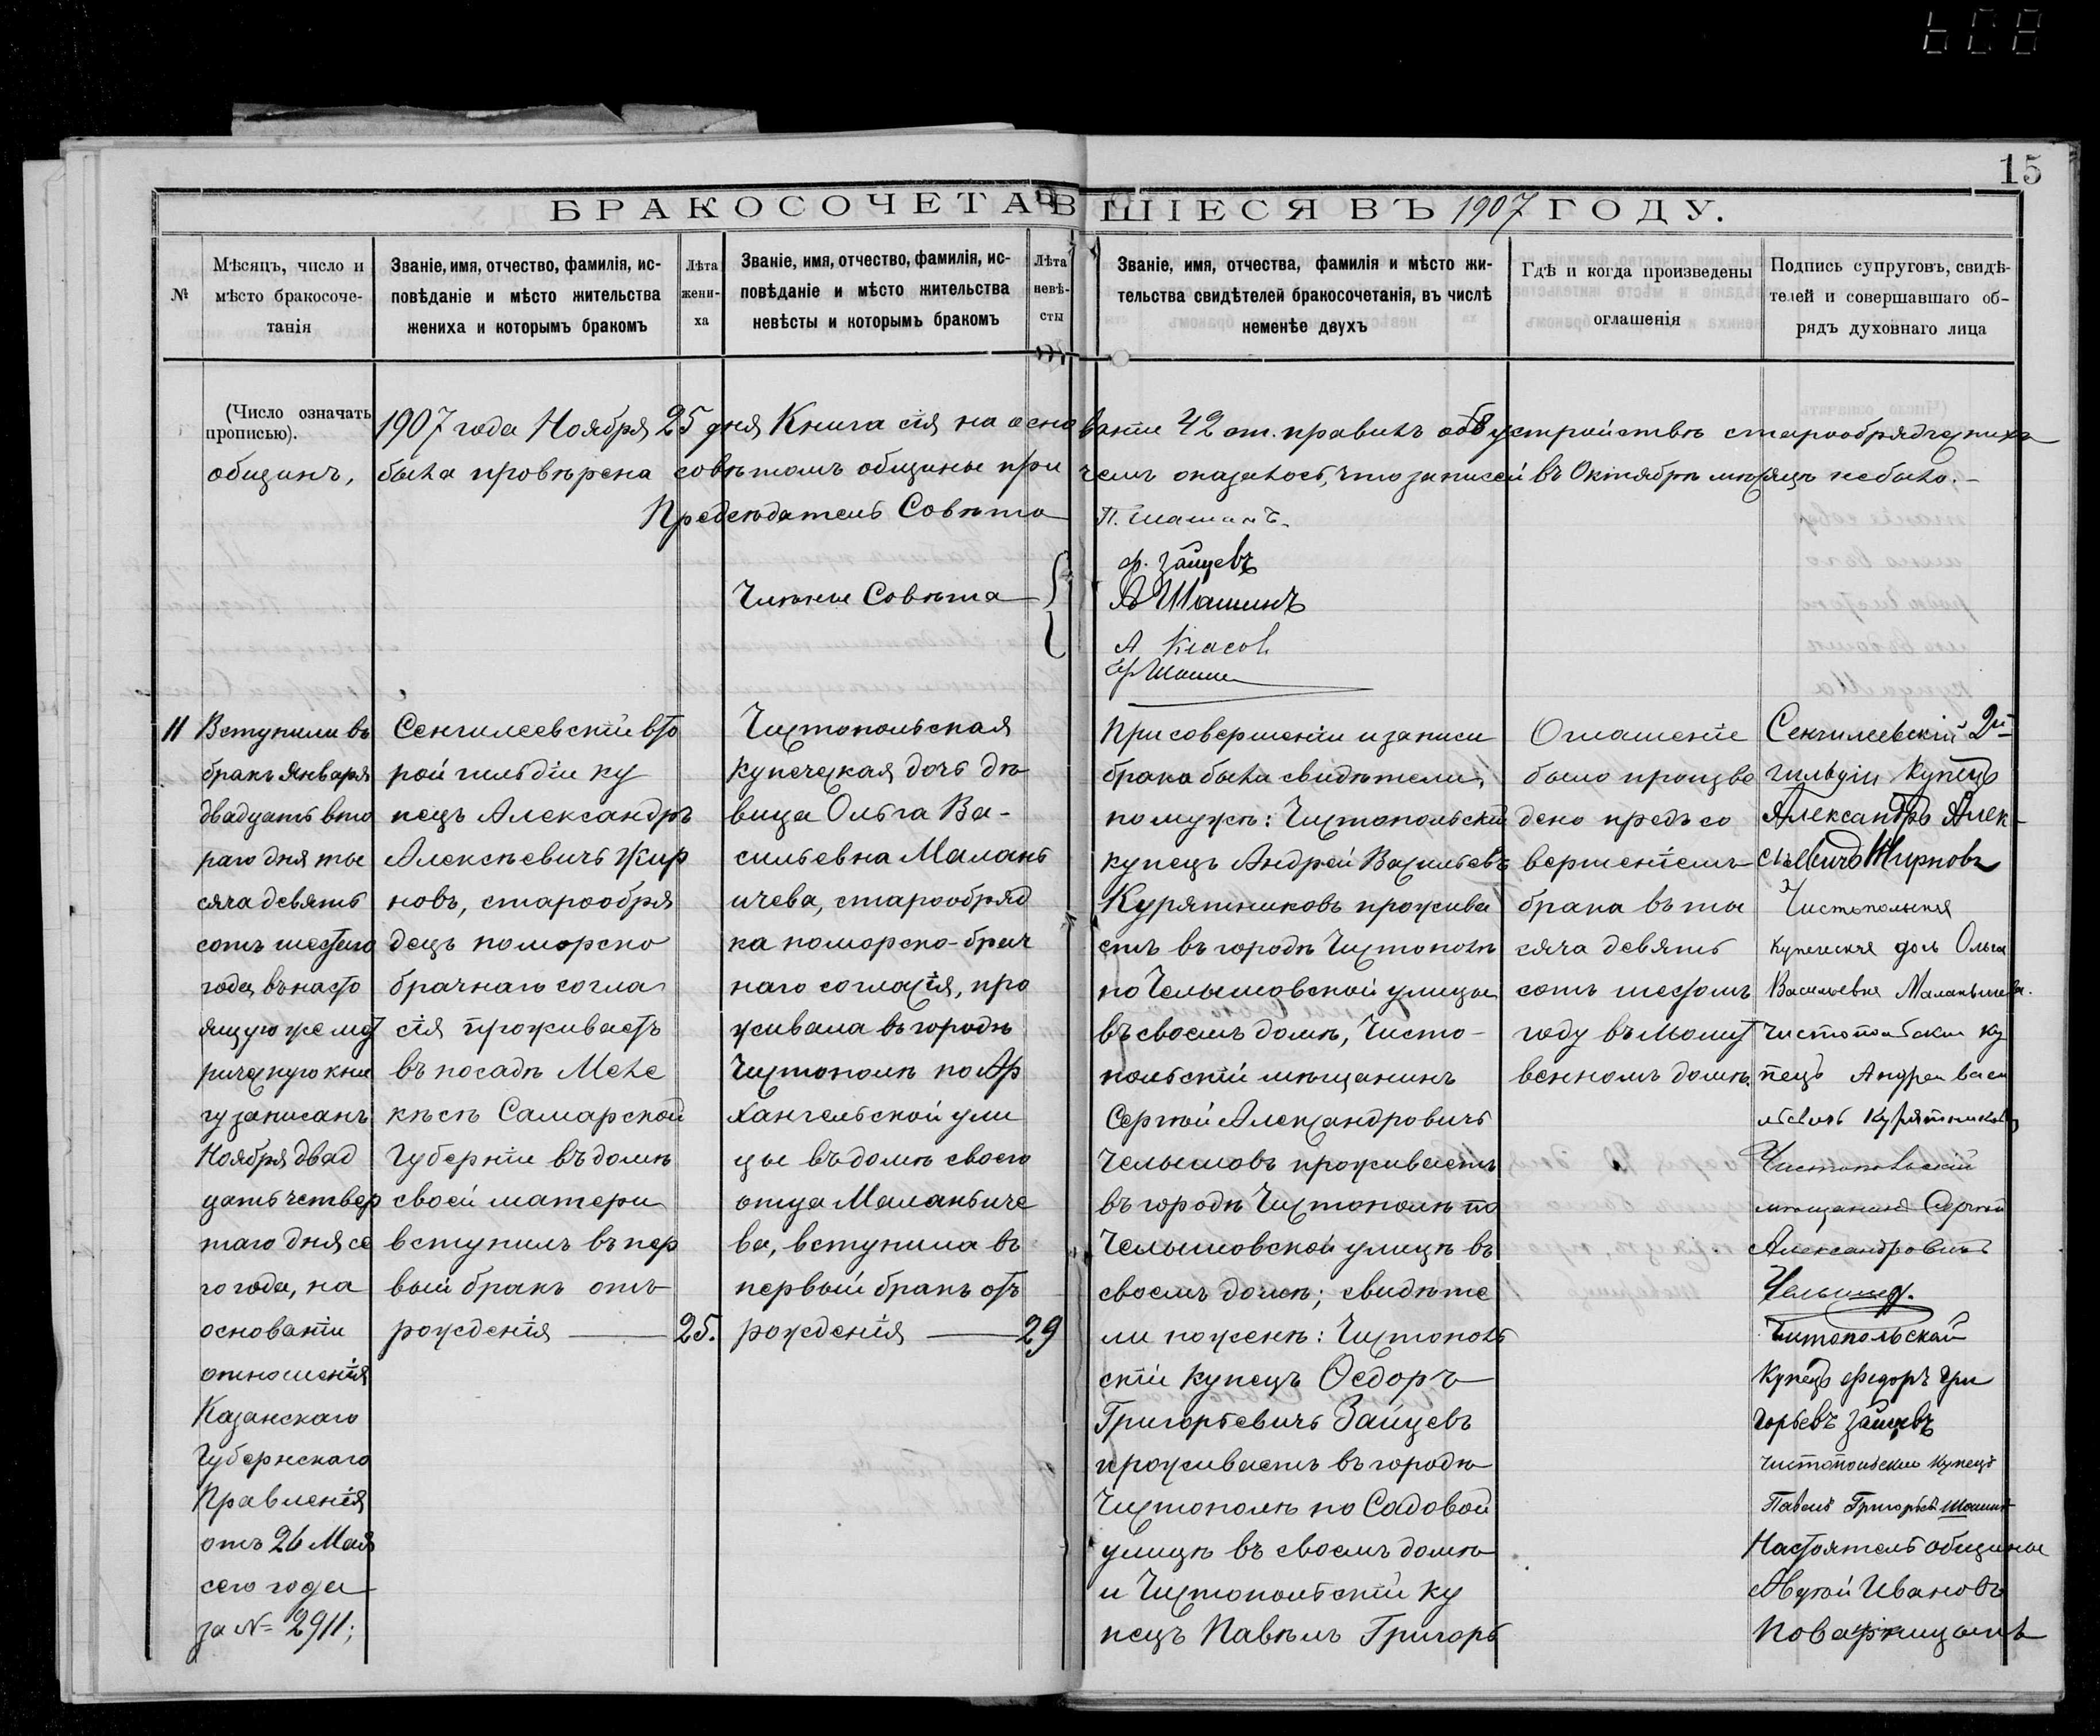 15
БРАКОСОЧЕТАВШІЕСЯ ВЪ 1907 ГОДУ.
№
Мѣсяцъ, число и
мѣсто бракосоче-
танія
Званіе, имя, отчество, фамилія, ис-
повѣданіе и мѣсто жительства
жениха и которымъ бракомъ
Лѣта
жени-
ха
Званіе, имя, отчество, фамилія, ис-
повѣданіе и мѣсто жительства
невѣсты и которымъ бракомъ
Лѣта
невѣ-
сты
Званіе, имя, отчества, фамилія и мѣсто жи-
тельства свидѣтелей бракосочетанія, въ числѣ
неменѣе двухъ
Гдѣ и когда произведены
оглашенія
Подпись супруговъ, свидѣ-
телей и совершавшаго об-
рядъ духовнаго лица
(Число означать
прописью).
1907 года Ноября 25 дня Книга сія на основаніи 42 ст. правилъ объ устройствѣ старообрядческихъ
общинъ, была провѣрена совѣтомъ общины при чемъ оказалось, что записей въ Октябрѣ мѣсяцѣ не было.-
Предсѣдатель Совѣта П. Шашинъ.
Ф. Зайцевъ
Члены Совѣта А Шашинъ
А Класов
Гр Шашин
11
Вступили въ
бракъ Января
двадцать вто
раго дня ты
сяча девять
сотъ шестаго
года, въ насто
ящую же мет
рическую кни
гу записанъ
Ноября двад
цать четвер
таго дня се
го года, на
основаніи
отношенія
Казанскаго
Губернскаго
Правленія
отъ 26 Мая
сего года
за № 2911;
Сенгилеевскій вто
рой гильдіи ку
пецъ Александръ
Алексѣевичъ Жир
новъ, старообря
децъ поморско
брачнаго согла
сія проживаетъ
въ посадѣ Меле
кѣсѣ Самарской
Губерніи въ домѣ
своей матери
вступилъ въ пер
вый бракъ отъ
рожденія — 25.
Чистопольская
купеческая дочь дѣ
вица Ольга Ва-
сильевна Малань
ичева, старообряд
ка поморско-брач
наго согласія, про
живала въ городѣ
Чистополѣ по Ар
хангельской ули
цы въ домѣ своего
отца Маланьиче
ва, вступила въ
первый бракъ отъ
рожденія — 29
При совершеніи и записи
брака были свидѣтели,
по мужѣ: Чистопольскій
купецъ Андрей Васильевъ
Курятниковъ прожива
етъ въ городѣ Чистополѣ
по Челышовской улицы
въ своемъ домѣ, Чисто-
польскій мѣщанинъ
Сергѣй Александровичъ
Челышовъ проживаетъ
въ городѣ Чистополѣ по
Челышовской улицѣ въ
своемъ домѣ; свидѣте
ли по женѣ: Чистополь
скій купецъ Ѳедоръ
Григорьевичъ Зайцевъ
проживаетъ въ городѣ
Чистополѣ по Садовой
улицѣ въ своемъ домѣ
и Чистопольскій ку
пецъ Павелъ Григорь
Оглашеніе
было произве
дено предъ со
вершеніемъ
брака въ ты
сяча девять
сотъ шестомъ
году въ молит
венномъ домѣ.
Сенгилеевскій 2й
гильдіи Купецъ
Александръ Алек-
сѣевичъ Жирновъ
Чистопольская
купеческая дочь Ольга
Васильевна Маланьичева.
Чистопольскии ку
пецъ Андреи Васи
льевичъ Курятниковъ
Чистопольскій
мѣщанинъ Сергѣй
Александровичъ
Челышов.
Чистопольскай
Купецъ Федоръ Гри
горьевъ Зайцевъ
Чистопольскии Купецъ
Павелъ Григорьев Шашин
Настоятель общины
Авдѣй Ивановъ